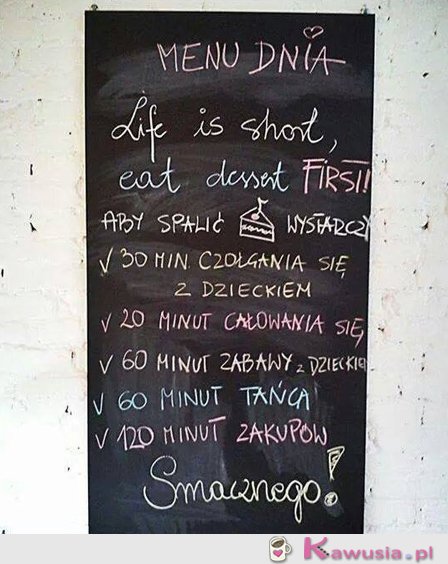 MENU DNIA
Life is short,
eat dessert FIRST!
ABY SPALIĆ WYSTARCZY
√ 30 MIN CZOŁGANIA SIĘ
Z DZIECKIEM
√ 20 MINUT CAŁOWANIA SIĘ
√ 60 MINUT ZABAWY z DZIECKIEM
√ 60 MINUT TAŃCA
√ 120 MINUT ZAKUPÓW
Smacznego!
Kawusia.pl